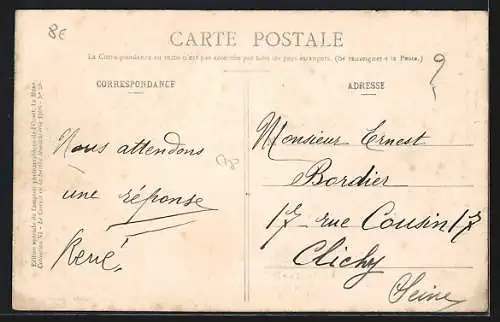 8€
CARTE POSTALE
La Correspondance au recto n'est pas acceptée par tous les pays étrangers. (Se renseigner à la Poste.)
CORRESPONDANCE
Nous attendons
une réponse
René,
ADRESSE
Monsieur Ernest
Bordier
17 rue Cousin 17
Clichy
Seine